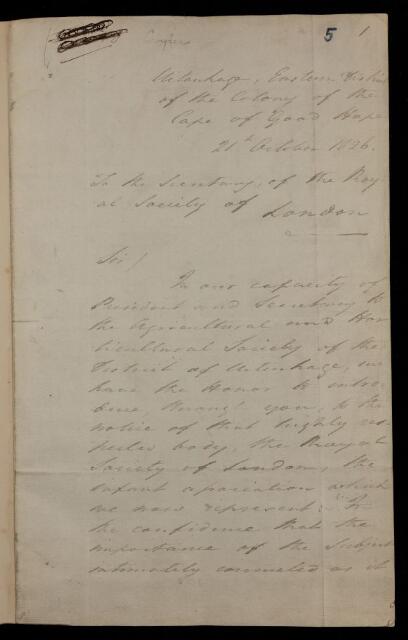 5 1
Copy
Uitenhage, Eastern District
of the Colony of the
Cape of Good Hope
21st October 1826.
To the Secretary, of the Roy
al Society of London
Sir!
In our capacity of
President and Secretary to
the Agricultural and Hor
ticultural Society of the
District of Uitenhage, we
have the Honor to intro
duce, through you, to the
notice of that highly res
pected body, the Royal
Society of London, the
infant association which
we now represent. In
the confidence that the
importance of the Subject
intimately connected as it